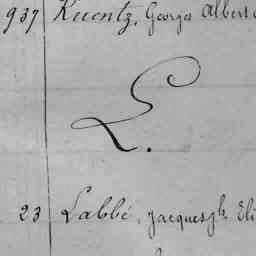 937 Kuentz, Georges Albert
L.
23 Labbé, Jacques